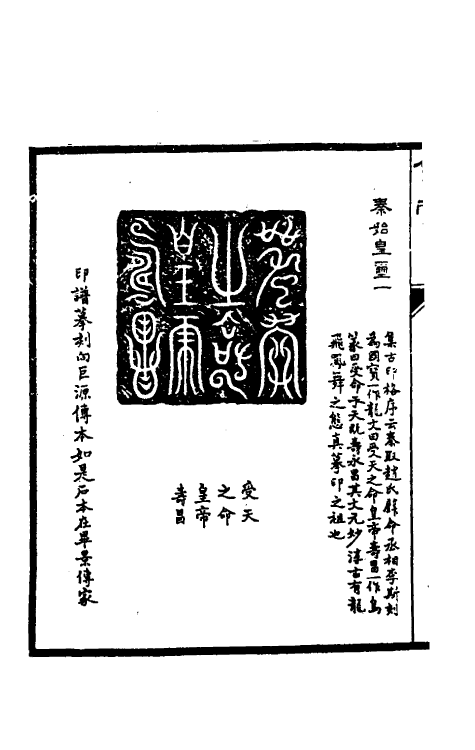 秦始皇璽一
集古印格序云秦取趙氏璧命丞相李斯刻
為國寶一作龍文曰受天之命皇帝壽昌一作鳥
篆曰受命于天既壽永昌其文元妙淳古有龍
飛鳳舞之態真摹印之祖也
受天
之命
皇帝
壽昌
印譜摹刻向巨源傳本如是石本在畢景傳家